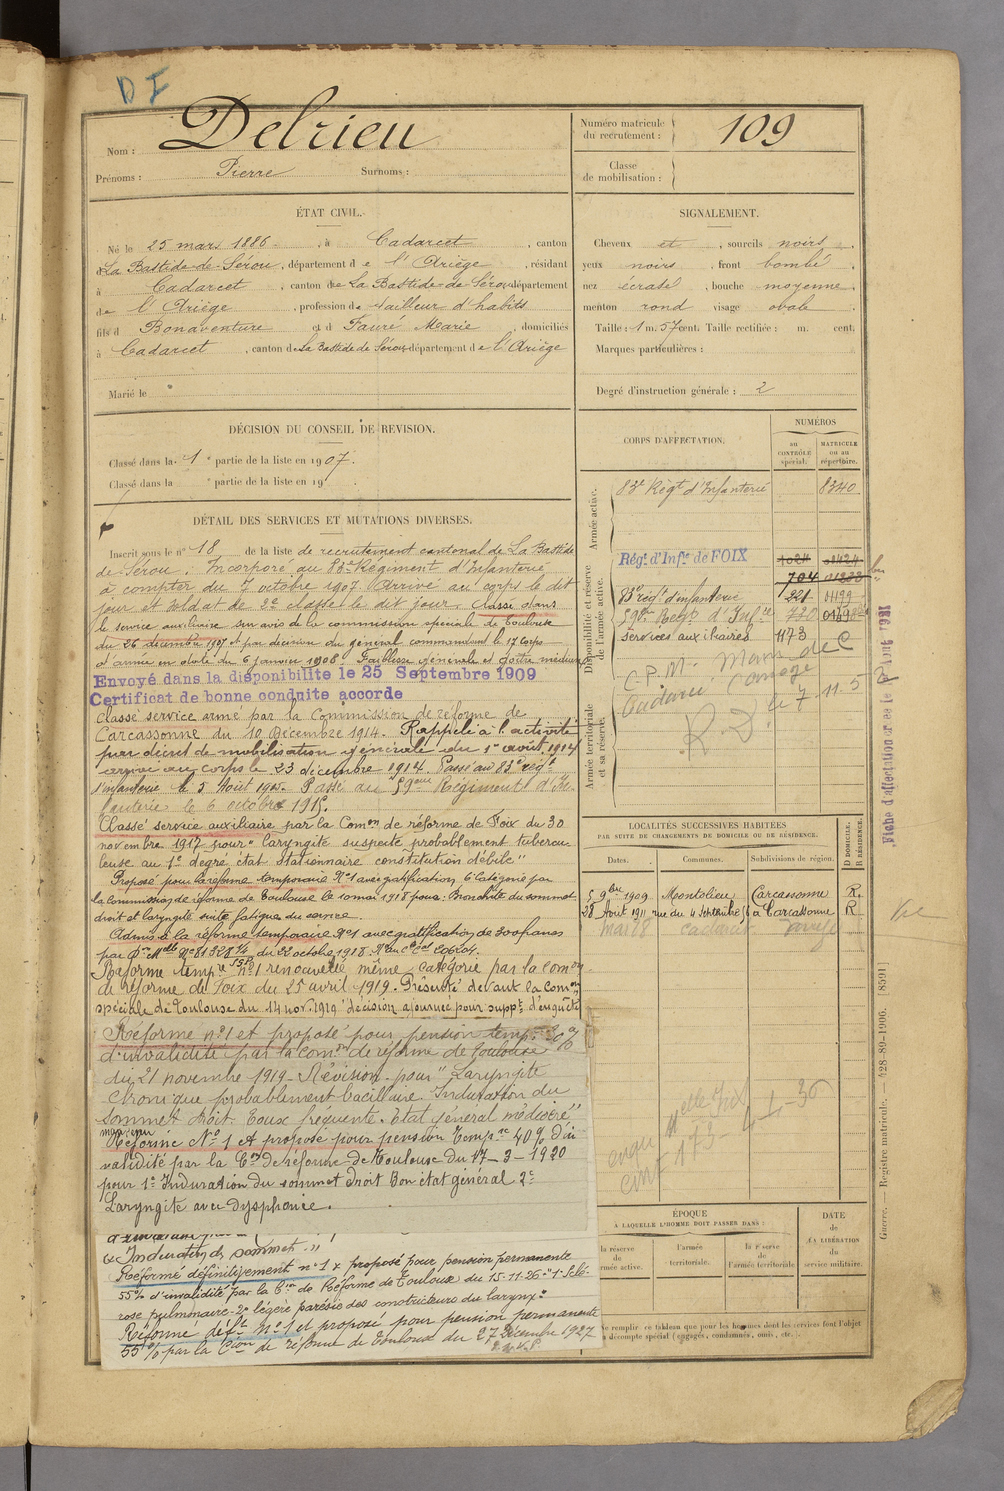 D I
Nom : Delrieu
Prénoms : Pierre Surnoms :
Numéro matricule du recrutement : 109
Classe de mobilisation :
ÉTAT CIVIL.
Né le 25 mars 1886 , à Cadarcet , canton
de La Bastide-de-Sérou , département de l'Ariège , résidant
à Cadarcet , canton de La Bastide-de-Sérou département
de l'Ariège , profession de tailleur d'habits
fils d Bonaventure et d Fauré Marie , domiciliés
à Cadarcet , canton de La Bastide de Sérou, département de l'Ariège
Marié le
SIGNALEMENT.
Cheveux et , sourcils noirs ,
yeux noirs , front bombé ,
nez écrasé , bouche moyenne ,
menton rond visage ovale
Taille : 1 m. 57 cent. Taille rectifiée : m. cent.
Marques particulières :
Degré d'instruction générale : 2
DÉCISION DU CONSEIL DE REVISION.
Classé dans la 1e partie de la liste en 1907.
Classé dans la e partie de la liste en 19
DÉTAIL DES SERVICES ET MUTATIONS DIVERSES.
Inscrit sous le n° 18 de la liste de recrutement cantonal de La Bastide
de Sérou. Incorporé au 83e Régiment d'Infanterie
à compter du 7 octobre 1907. Arrivé au corps le dit
jour et soldat de 2e classe le dit jour. Classé dans
le service auxiliaire sur avis de la commission spéciale de Toulouse
du 26 décembre 1907 et par décision du général commandant le 17 Corps
d'armée en date du 6 janvier 1908. Faiblesse générale et goitre médium
Envoyé dans la disponibilité le 25 Septembre 1909
Certificat de bonne conduite accordé
Classé service armé par la Commission de réforme de
Carcassonne du 10 Décembre 1914. Rappelé à l'activité
par décret de mobilisation générale du 1er août 1914
arrivé au corps le 23 décembre 1914. Passé au 83e régt
d'infanterie le 5 Août 1915. Passé au 59ème Régiment d'In-
fanterie le 6 octobre 1915.
Classé service auxiliaire par la Comon de réforme de Foix du 30
novembre 1917 pour "laryngite suspecte probablement tubercu-
leuse au 1e degré état stationnaire constitution débile"
Proposé pour la réforme temporaire N°1 avec gratification 6e catégorie par
la Commission de réforme de Toulouse le 10 mai 1918 pour : Bronchite du sommet
droit et laryngite suite fatigue du service.
Admis à la réforme temporaire N°1 avec gratification de 300 francs
par Don Mlle N° 81328 1/4 du 22 octobre 1918.
Réforme tempre n°1 renouvelée même catégorie par la comon
de réforme de Foix du 25 avril 1919. Présenté devant la comon
spéciale de Toulouse du 14 nov. 1919 "décision ajournée pour suppt d'enquête
Réforme n°1 et proposé pour pension temp. 20 %
d'invalidité par la comon de réforme de Toulouse
du 21 novembre 1919 - Révision - pour "Laryngite
chronique probablement bacillaire. Induration du
sommet droit. Toux fréquente. Etat général médiocre"
Réformé N° 1 et proposé pour pension tempre 40 % d'in
validité par la Con de réforme de Toulouse du 17-3-1920
pour 1° Induration du sommet droit Bon état général 2°
Laryngite avec dysphonie.
Induration du sommet."
Réformé définitivement n°1 & proposé pour pension permanente
55% d'invalidité par la Con de Réforme de Toulouse du 15-11-26 : "1° Sclé-
rose pulmonaire - 2° légère parésie des constricteurs du larynx"
Réformé déft N°1 et proposé pour pension permanente
55 % par la Cion de réforme de Toulouse du 27 Décembre 1927
CORPS D'AFFECTATION.
NUMÉROS
au CONTRÔLE spécial.
MATRICULE ou au répertoire.
Armée active.
83e Régt d'Infanterie 8340
Disponibilité et réserve de l'armée active.
Régt d'Infie de FOIX 1024
704
83e régt d'infanterie 221 01199
59e Regt d'Infie 720
services auxiliaires 1173
Armée territoriale et sa réserve.
C.P.M. Mann de C
R.D.
Fiche d'affectation
LOCALITÉS SUCCESSIVES HABITÉES
PAR SUITE DE CHANGEMENTS DE DOMICILE OU DE RÉSIDENCE.
Dates. Communes. Subdivisions de région. D DOMICILE. R RÉSIDENCE.
5 9bre 1909 Montolieu Carcassonne R.
28 Août 1911 rue du 4 Septembre 56 à Carcassonne R
mai 28 Cadarcet
ÉPOQUE
À LAQUELLE L'HOMME DOIT PASSER DANS :
la réserve de l'armée active.
l'armée territoriale.
la réserve de l'armée territoriale
DATE de LA LIBÉRATION du service militaire.
Ne remplir ce tableau que pour les hommes dont les services font l'objet
d'un décompte spécial (engagés, condamnés, omis, etc.).
Guerre. — Registre matricule. — 428-89-1906. [8591]